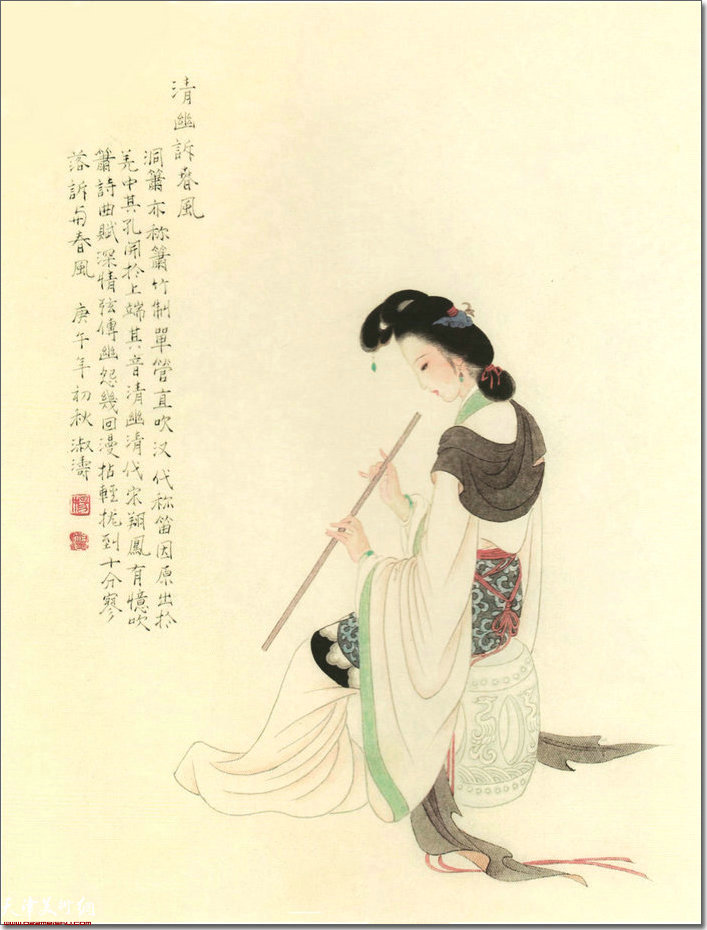 清幽訴春風
洞簫亦称簫竹制單管直吹汉代称笛因原出於
羌中其孔開於上端其音清幽清代宋翔鳳有憶吹
簫詩曲賦深情弦傳幽怨幾回漫拈輕拢到十分寥
落訴与春風 庚午年初秋淑濤